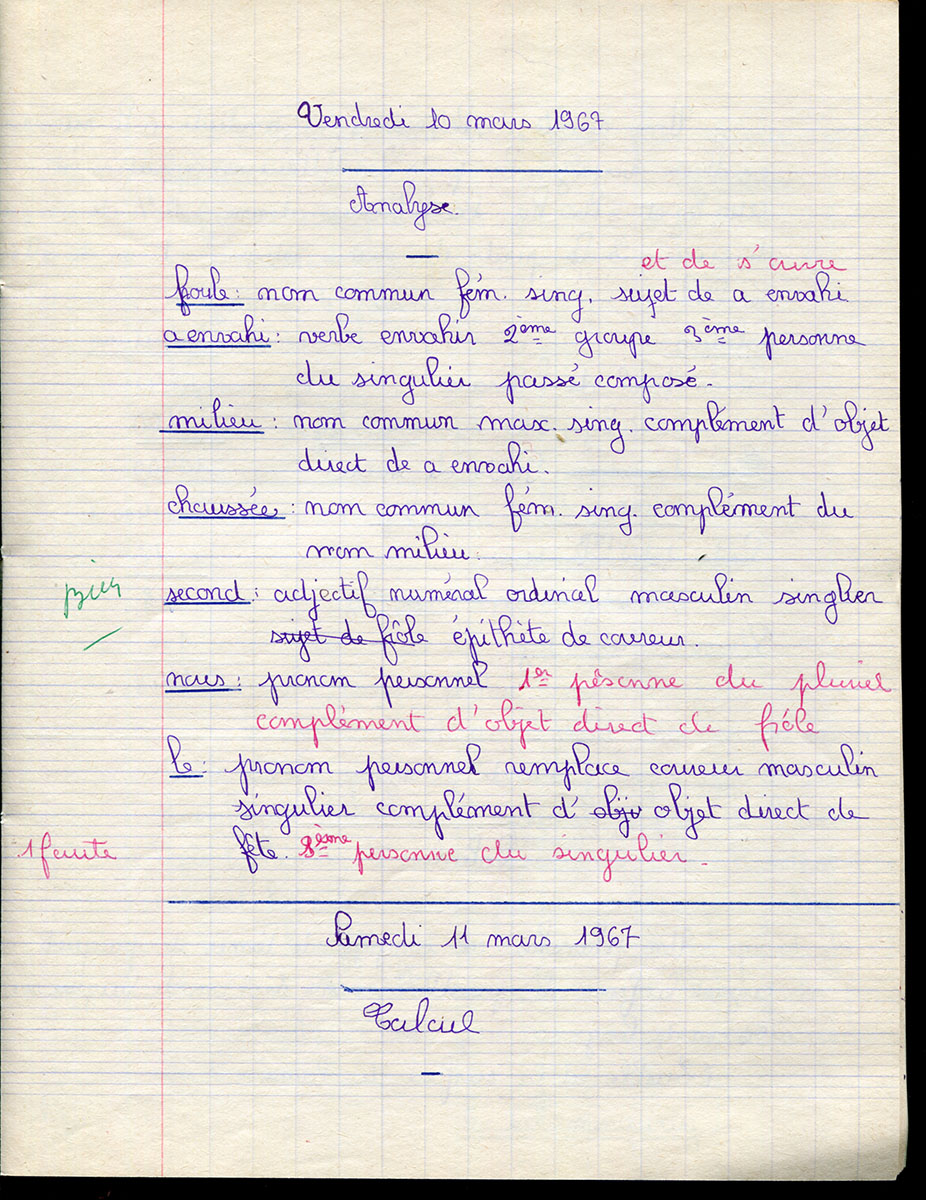 Vendredi 10 mars 1967
Analyse.
et de s'ouvre
foule : nom commun fém. sing. sujet de a envahi
a envahi : verbe envahir 2ème groupe 3ème personne
du singulier passé composé.
milieu : nom commun masc. sing. complément d'objet
direct de a envahi.
chaussée : nom commun fém. sing. complément du
nom milieu.
bien
second : adjectif numéral ordinal masculin singlier
sujet de frôle épithète de coureur.
nous : pronom personnel 1er pèsonne du pluriel
complément d'objet direct de frôle
le : pronom personnel remplace coureur masculin
singulier complément d' obje objet direct de
1 faute
fête. 3ème personne du singulier.
Samedi 11 mars 1967
Calcul